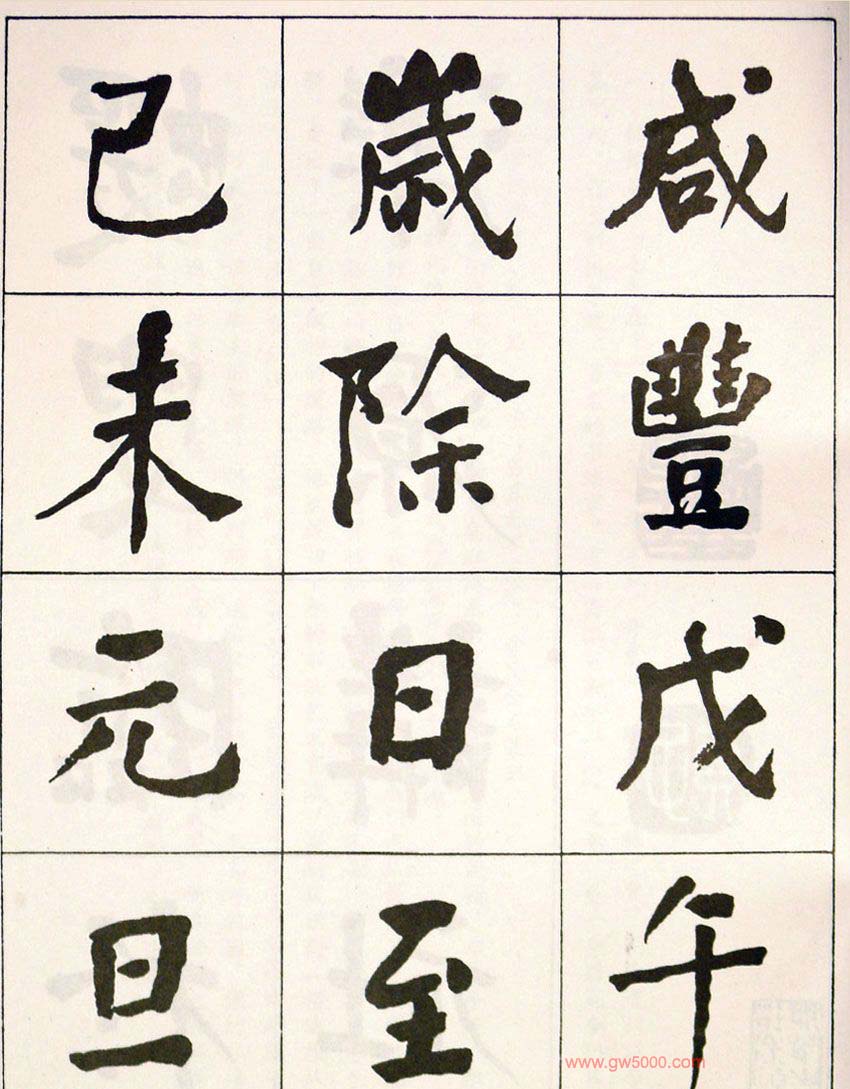 咸豐戊午
歲除日至
己未元旦
www.gw5000.com